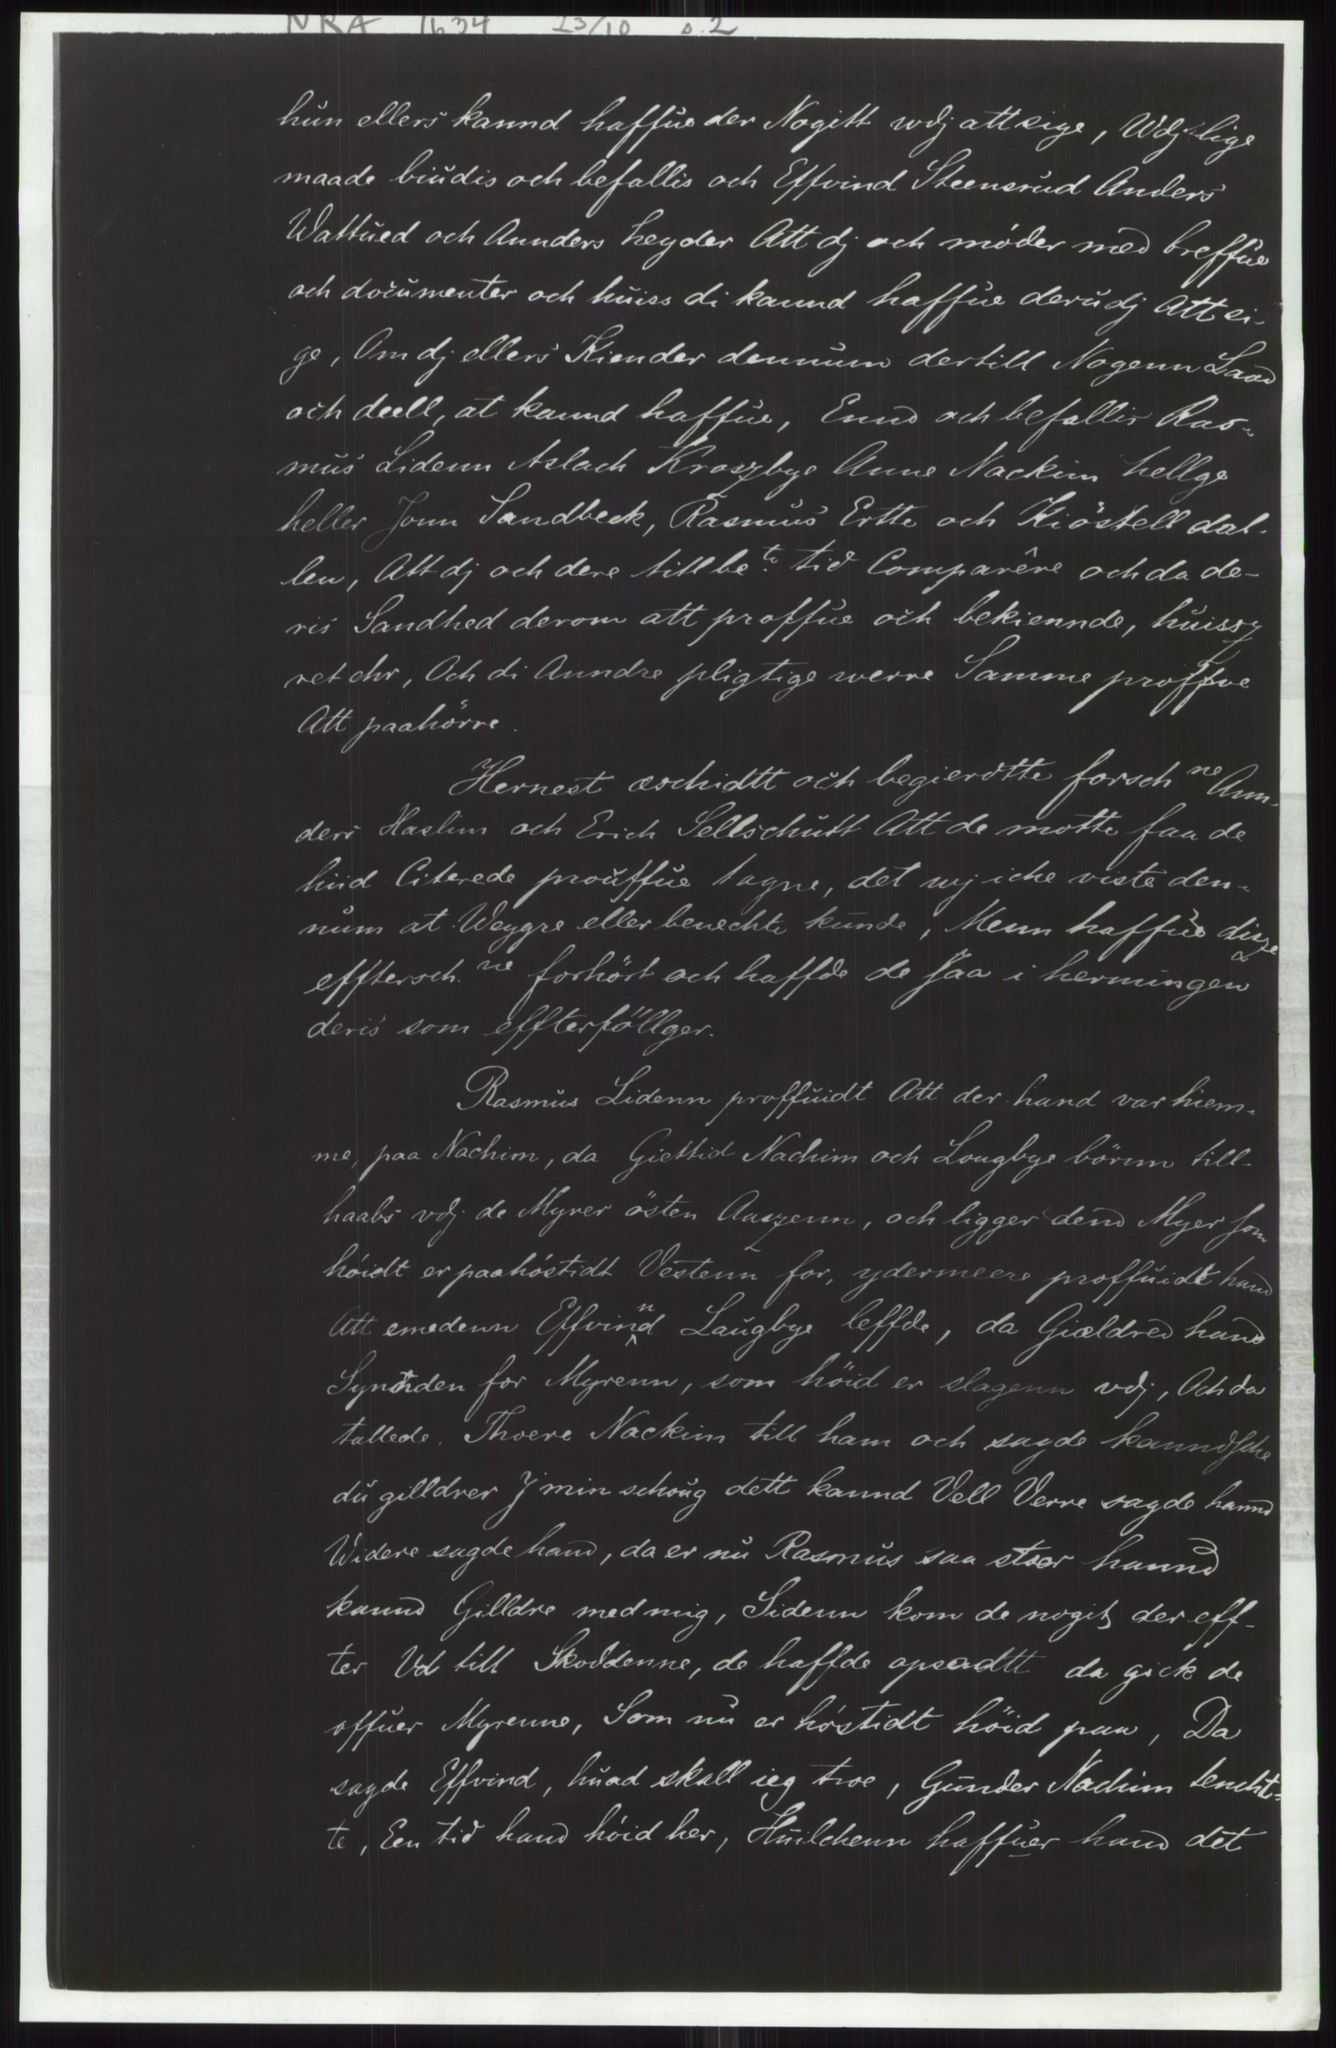 NRA 1634 13/10 s. 2
hun ellers kannd haffue der Nogitt wdj att sige, Wdj lige
maade biudis och befallis och Effvind Steensrud Anders
Wattued och Aunders heyder Att dj och möder med breffue
och documenter och huiss di kannd haffue derudj Att si-
ge, Om dj ellers Kiender dennum dertill Nogenn Laad
och deell, at kannd haffue, Ennd och befallis Ras-
mus Lidenn Aslach Kroszbye Anne Nackim hellge
heller Jonn Sandbeck, Rasmus Ertte och Kiöstell dah-
len, Att dj och dere till be.te tid Comparêre och da de-
ris Sandhed derom att proffue och bekiennde, huissz
ret ehr, Och di Anndre pligtige werre Samme proffue
Att paahörre.
Hernest æschidtt och begierdtte forsch ne Ann-
ders Haslim och Erich Sellschutt Att de motte faa de
hiid Citerede prouffue tagne, det wj iche viste den-
num at Weygre eller benechte kunde, Menn haffue disze
efftersch. ne forhört och haffde de saa i herningen
deris som effterföllger.
Rasmus Lidenn proffuidt Att der hand var hiem-
me, paa Nachim, da Giettid Nachim och Lougbye börnn till-
haabs vdj de Myrer östen Aaszenn, och ligger dend Myer som
höidt er paahöstidt Vestenn for, ydermeere proffuidt hand
Att emedenn Effvinnd Laugbye leffde, da Giældred hand
Synnden for Myrenn, som höid er slagenn vdj, Och da
tallede. Thoere Nackim till ham och sagde kanndsche
du gilldrer J min schoug dett kannd Vell Verre sagde hannd
Widere sagde hand, da er nu Rasmus saa stoer hannd
kannd Gilldre med mig, Sidenn kom de nogit der eff-
ter Vd till Skoddenne, de haffde opsadtt da gick de
offuer Myrenne, Som nu er höstidt höid paa, Da
sagde Effvind, huad skall ieg troe, Gunder Nachim tencht-
te, Een tid hand höid her, Huilchenn haffuer hand det